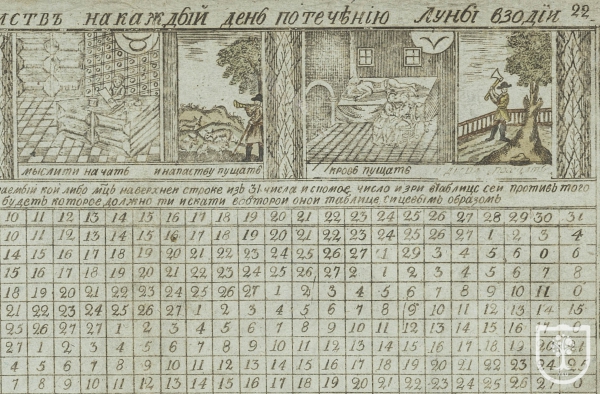 ИСТВЪ НАКАЖДЫЙ ДЕНЬ ПОТЕЧЕНІЮ ЛУНЫ ВЗОДІИ 22
МЫСЛИТИ НАЧАТЬ ИНАПАСТВУ ПУЩАТЬ КРОВЬ ПУЩАТЬ
аемыи кои либо мцъ наверхнеи строке изъ 31 числа ипомое число изри втаблице сеи противъ того
будетъ которое должно ти искати вовторои онои таблице сицевымъ образомъ
10 11 12 13 14 15 16 17 18 19 20 21 22 23 24 25 26 27 28 29 30 31
10 11 12 13 14 15 16 17 18 19 20 21 22 23 24 25 26 27 1 2 3 4
14 15 16 17 18 19 20 21 22 23 24 25 26 27 1 29 3 4 5 6 0 6
15 16 17 18 19 20 21 22 23 24 25 26 27 2 1 2 3 4 5 6 7 8
18 19 20 21 22 23 24 25 26 27 1 2 3 4 5 6 7 8 9 10 11 0
21 22 23 24 25 26 27 1 2 3 4 5 6 7 8 9 10 11 12 13 14 15
25 26 27 27 1 2 3 4 5 6 7 8 9 10 11 12 13 14 15 16
27 1 2 3 4 5 6 7 8 9 10 11 12 13 14 15 16 17 18 19 20 21
4 5 6 7 8 9 10 11 12 13 14 15 16 17 18 19 20 21 22 23 24
7 8 9 10 11 12 13 14 15 16 17 18 19 20 21 22 23 24 25 26 27 0